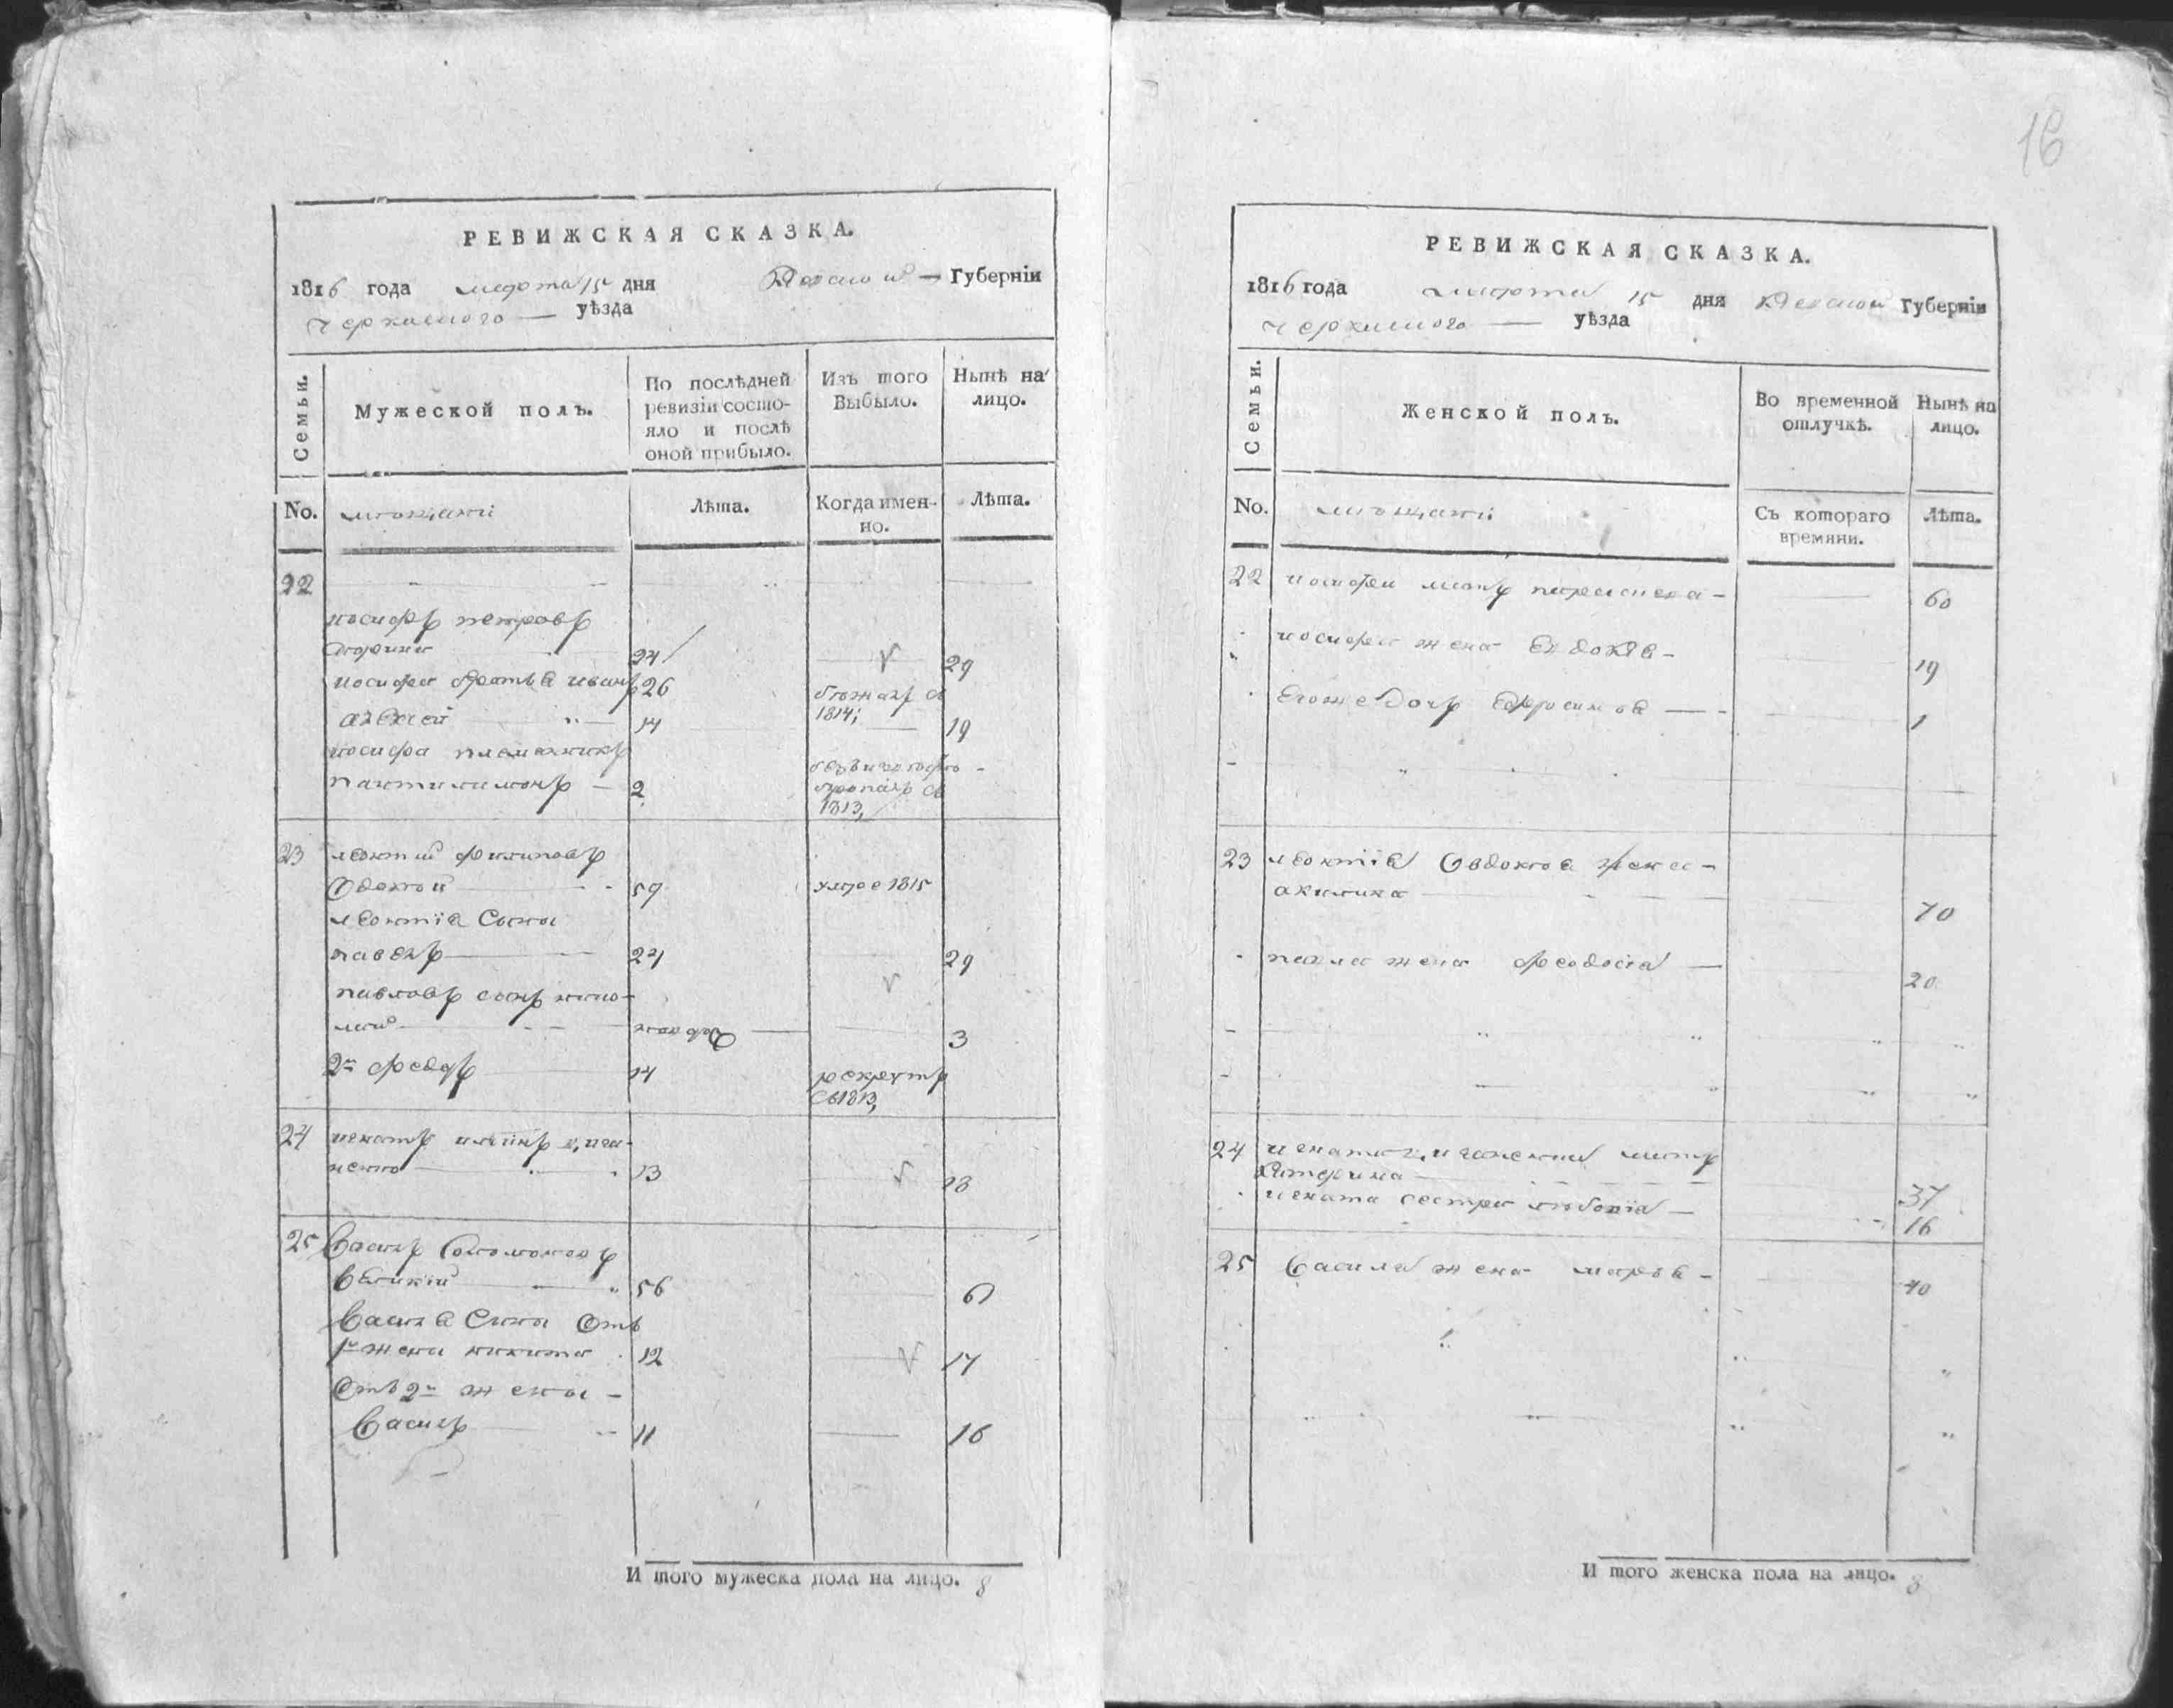 РЕВИЖСКАЯ СКАЗКА.
1816 года марта 15 дня Киевской Губерніи
Черкаского уѣзда
Семьи.
Мужеской полъ.
По послѣдней
ревизіи состо-
яло и послѣ
оной прибыло.
Изъ того
Выбыло.
Нынѣ на
лицо.
No.
мѣщане
Лѣта.
Когда имен-
но.
Лѣта.
22
иосифъ петровъ
24 29
иосифа братья иванъ 26 бѣжалъ въ
алексей 14 1814; 19
иосифа племянникъ
пантилимонъ 2
пропалъ въ
1813,
23 леонтий филиповъ
59 умре 1815
леонтіа сыны
павелъ 24 29
павловъ сынъ нико-
лай 3
2й федоръ 14 рекрутъ
въ 1813,
24 игнатъ
13 18
25 василь Соломоновъ
великий 56 61
василя сыны отъ
1й жены никита 12 17
отъ 2й жены
василь 11 16
И того мужеска пола на лицо. 8
16
РЕВИЖСКАЯ СКАЗКА.
1816 года марта 15 дня Киевской Губерніи
Черкаского уѣзда
Семьи.
Женской полъ.
Во временной
отлучкѣ.
Нынѣ на
лицо.
No.
мѣщане
Съ котораго
времяни.
Лѣта.
22 иосифа мать 60
иосифа жена Евдокія 19
Егоже дочь Ефросиния 1
23 леонтіа жена
акилина 70
павла жена феодосіа 20
24 игната мать
катерина 37
игната сестра 16
25 василя жена марфа 40
И того женска пола на лицо. 8